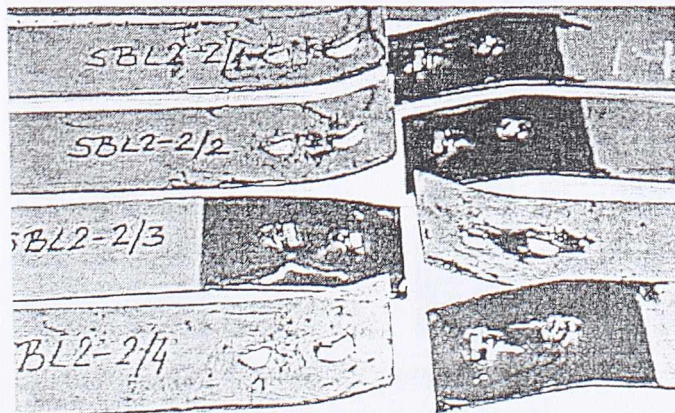 SBL2-2/1
SBL2-2/2
SBL2-2/3
BL2-2/4